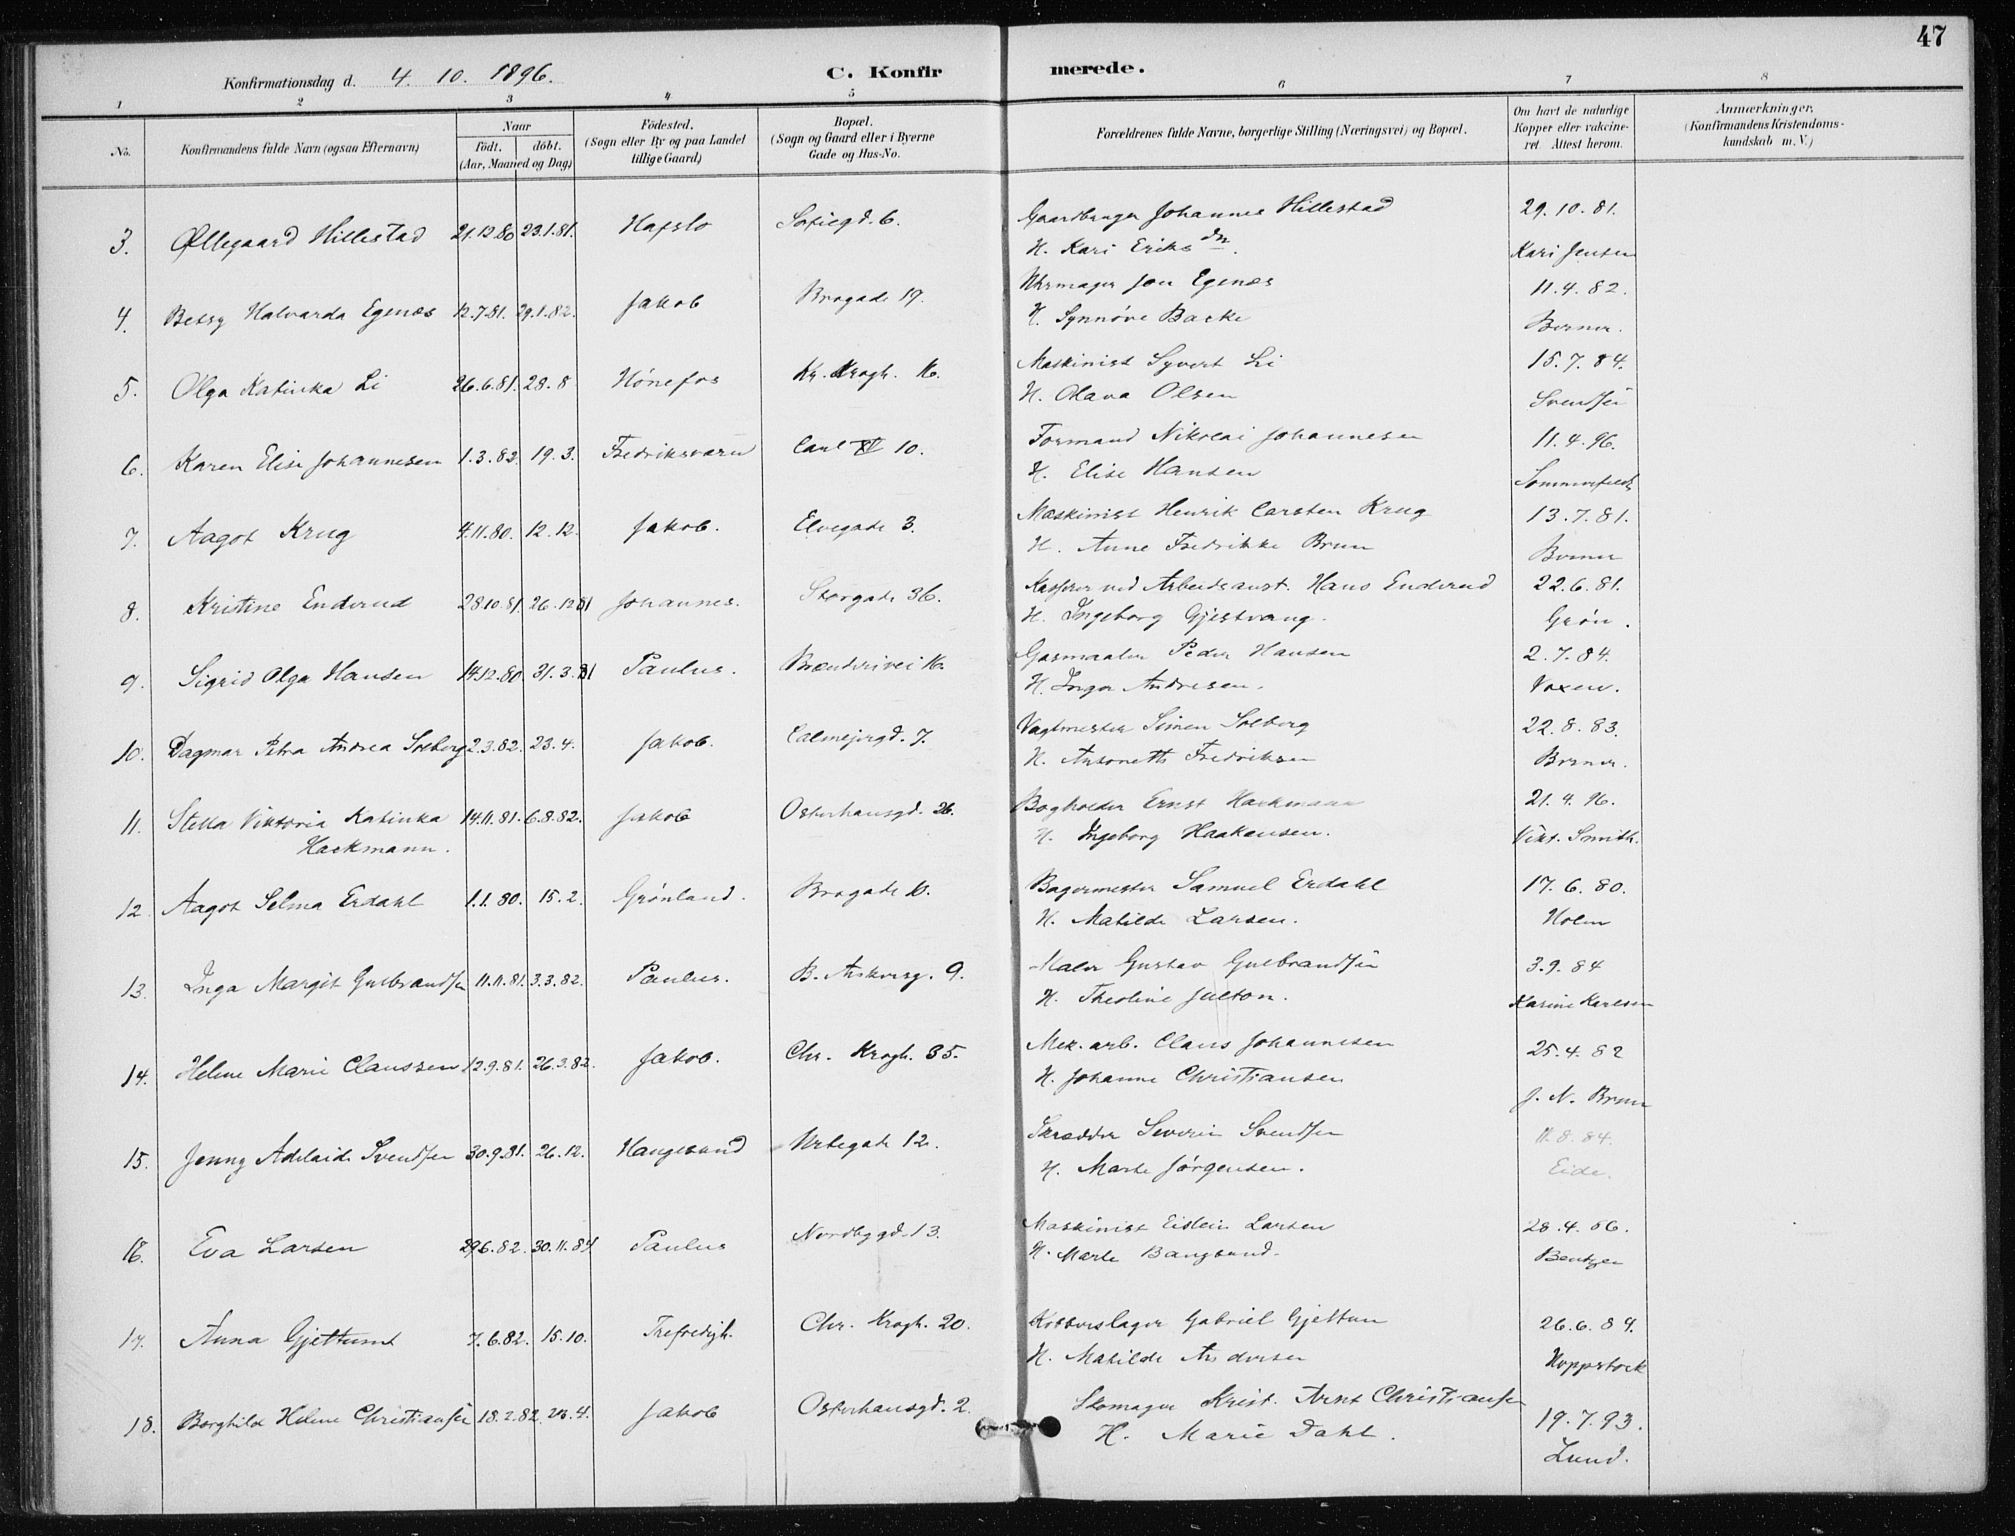 47
Konfirmationsdag d. 4. 10. 1896.
C. Konfirmerede.
1 2 3 4 5 6 7 8
No.
Konfirmandens fulde Navn (ogsaa Efternavn)
Naar
født. døbt.
(Aar, Maaned og Dag)
Fødested.
(Sogn eller By og paa Landet
tillige Gaard)
Bopæl.
(Sogn og Gaard eller i Byerne
Gade og Hus-No.
Forældrenes fulde Navne, borgerlige Stilling (Næringsvei) og Bopæl.
Om havt de naturlige
Kopper eller vakcine-
ret. Attest herom.
Anmærkninger,
(Konfirmandens Kristendoms-
kundskab m. V.)
3. Øllegaard Hillestad 21.12.80 23.1.81. Hafslo Sofiegd. 6. Gaardbruger Johannes Hillestad 29.10.81.
H. Kari Eriksdn. Kari Jensen
4. Betsy Halvarda Egenæs 12.7.81. 29.1.82. Jakob Brogade 19. Uhrmager Jon Egenæs 11.4.82.
H. Synnøve Bakke Borner.
5. Olga Katinka Li 26.6.81. 28.8 Hønefos Kr. Krogh. 16. Maskinist Syvert Li 15.7.84.
H. Olava Olsen Svendsen
6. Karen Elise Johannesen 1.3.82. 19.3. Fredriksværn Carl XI 10. Formand Nikolai Johannesen 11.4.96.
H. Elise Hansen Sommerfeldt
7. Aagot Krug 4.11.80. 12.12. Jakob. Elvegade 3. Maskinist Henrik Carsten Krug 13.7.81.
H. Anne Fredrikke Brun Borner
8. Kristine Enderud 28.10.81. 26.12.81 Johannes. Storgade 36. Kasserer ved Arbeidsanst. Hans Enderud 22.6.81.
H. Ingeborg Gjestvang. Grøn.
9. Sigrid Olga Hansen 14.12.80. 31.3.81 Paulus. Brænderivei 16. Gasmaaler Peder Hansen 2.7.84.
H. Inga Andresen. Voxen.
10. Dagmar Petra Andrea Solberg 2.3.82. 23.4. Jakob. Calmejergd. 7. Vagtmester Simen Solberg 22.8.83.
H. Antonette Fredriksen Borner.
11. Stella Viktoria Katinka 14.11.81. 6.8.82. Jakob Osterhausgd. 26. Bogholder Ernst Hackmann 21.4.96.
Hackmann. H. Ingeborg Haakensen. Vikt. Smith.
12. Aagot Selma Erdahl 1.1.80. 15.2. Grønland. Brogade 10. Bagermester Samuel Erdahl 17.6.80.
H. Matilde Larsen. Holm
13. Inga Margit Gulbrandsen 11.11.81. 3.3.82. Paulus. B. Ankersg. 9. Maler Gustav Gulbrandsen 3.9.84
H. Theoline Julton. Karine Karlsen
14. Helene Marie Claussen 12.9.81. 26.3.82. Jakob. Chr. Krogh. 35. Mek. arb. Claus Johannesen 25.4.82
H. Johanne Christiansen J. N. Brun
15. Jenny Adelaide Svendsen 30.9.81. 26.12. Haugesund Urtegade 12. Skrædder Severin Svendsen 11.8.84.
H. Marte Jørgensen. Eide.
16. Eva Larsen 29.6.82. 30.11.84. Paulus Nordbygd. 13. Maskinist Eistein Larsen 28.4.86.
H. Marte Bangsund. Bentzen
17. Anna Gjettum 7.6.82. 15.10. Trefoldigh. Chr. Krogh. 20. Kobberslager Gabriel Gjettum 26.6.84.
H. Matilde Andersen Hoppstock
18. Borghild Helene Christiansen 18.2.82. 23.4. Jakob Osterhausgd. 2. Skomager Krist. Arnt Christiansen 19.7.93.
H. Marie Dahl. Lund.